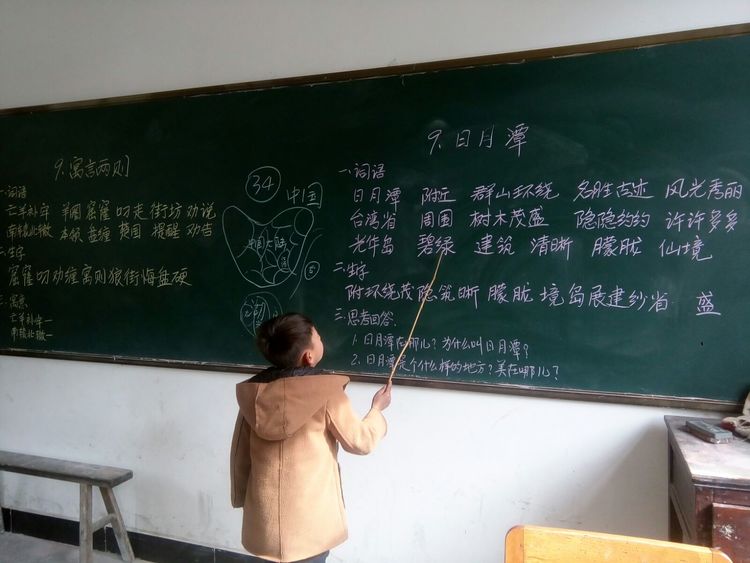 9.寓言两则
一.词语
亡羊补牢 羊圈 窟窿 叼走 街坊 劝说
南辕北辙 本领 盘缠 楚国 提醒 劝告
二.生字
窟窿叼劝缠寓则狼街悔盘硬
三.寓意
亡羊补牢—
南辕北辙
34
中国
中国大陆
9.日月潭
一.词语
日月潭 附近 群山环绕 名胜古迹 风光秀丽
台湾省 周围 树木茂盛 隐隐约约 许许多多
光华岛 碧绿 建筑 清晰 朦胧 仙境
二.生字
附环绕茂隐筑晰 朦胧 境岛展建纱省 盛
三.思考回答.
1.日月潭在哪儿?为什么叫日月潭?
2.日月潭是个什么样的地方?美在哪儿?